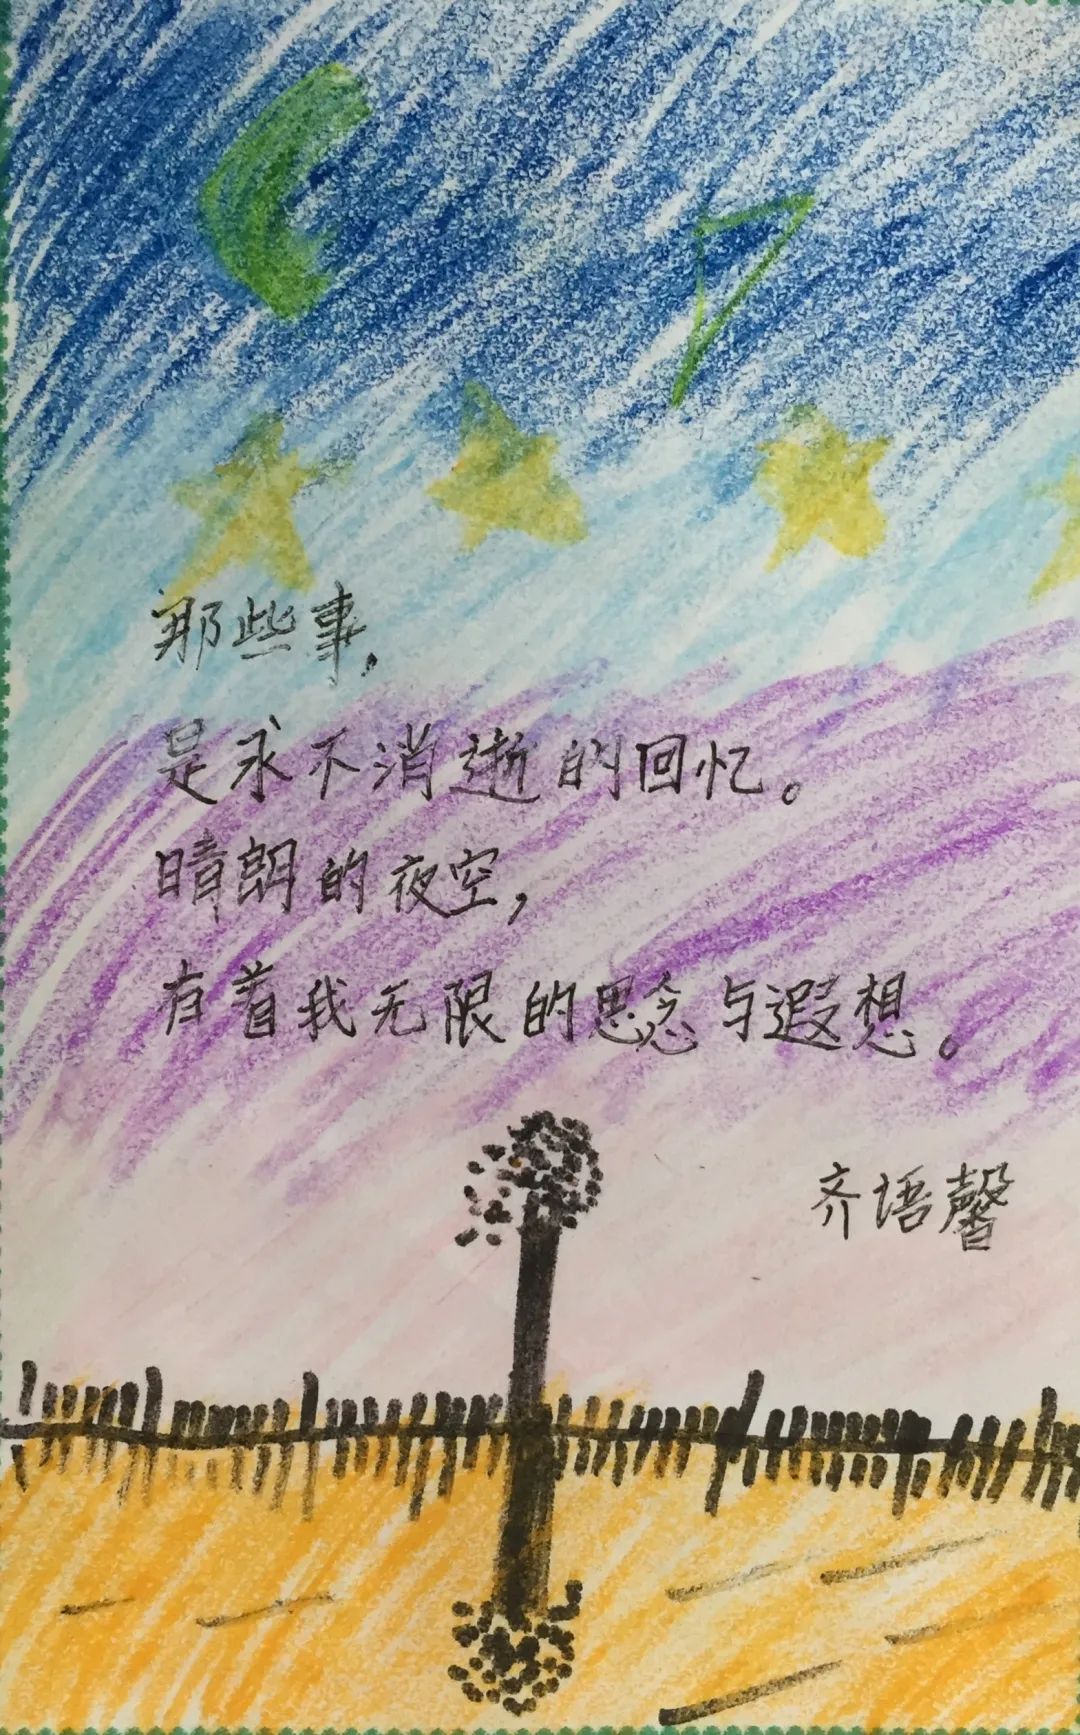 那些事，
是永不消逝的回忆。
晴朗的夜空，
有着我无限的思念与遐想。
齐语馨